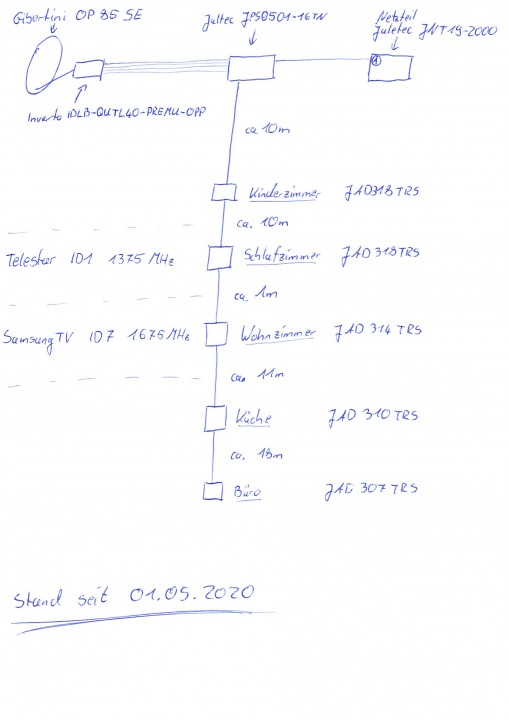 Gibertini OP 85 SE
Jultec JPS0501-16TN
Netzteil
Juletec JNT19-2000
1
Inverto IDLB-QUTL40-PREMU-OPP
ca 10m
Kinderzimmer JAD318TRS
ca. 10m
Telestar ID1 1375 MHz
Schlafzimmer JAD 318TRS
ca. 1m
Samsung TV ID7 1675MHz
Wohnzimmer JAD 314 TRS
ca. 11m
Küche JAD 310TRS
ca. 13m
Büro JAD 307 TRS
Stand seit 01.05.2020